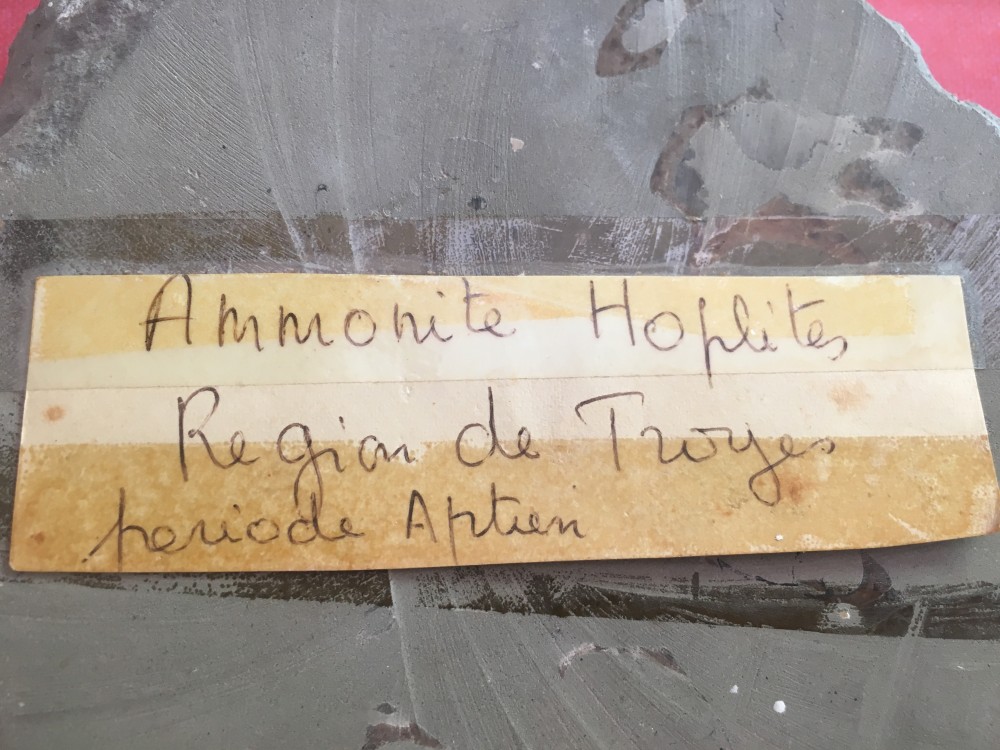 Ammonite Hoplites
Region de Troyes
periode Aptien